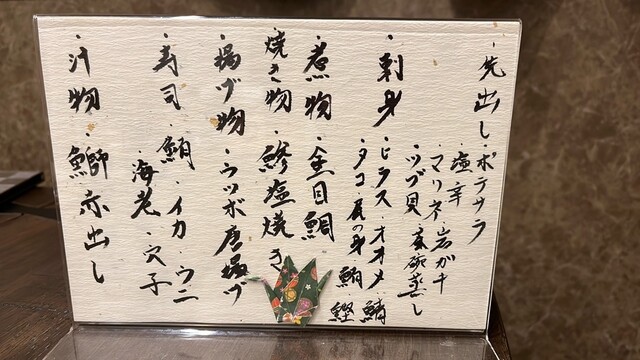 ・先出し・ポテサラ
・塩辛
・マリネ・岩ガキ
・ツブ貝・茶碗蒸し
・刺身・ヒラス・オオメ・鯖
・タコ 貝の身 鮪 鰹
・煮物・金目鯛
・焼き物・鯵塩焼き
・揚げ物・ウツボ唐揚げ
・寿司・鮪・イカ・ウニ
・海老・穴子
・汁物・鰤赤出し